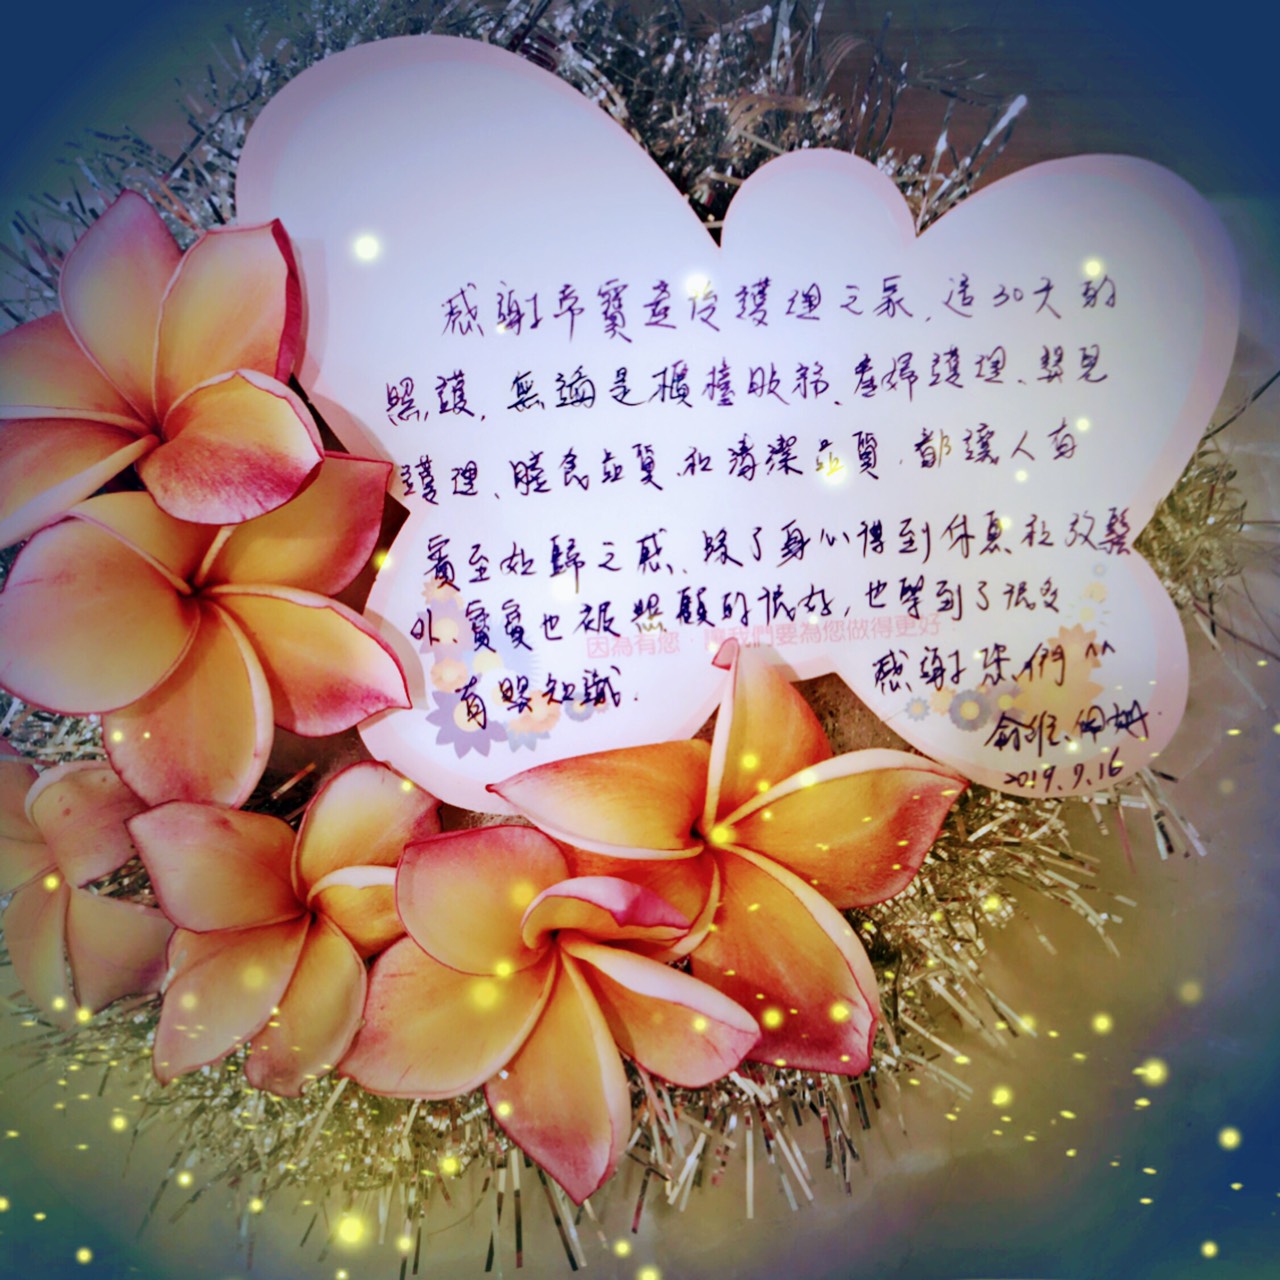 感謝帝寶產後護理之家,這30天的
照護,無論是櫃檯服務、產婦護理、嬰兒
護理、膳食品質和清潔品質,都讓人有
賓至如歸之感、除了身心得到休息和放鬆
外、寶寶也被照顧的很好,也學到了很多
因為有您,讓我們要為您做得更好
育嬰知識.
感謝您們 ^^
2019.9.16